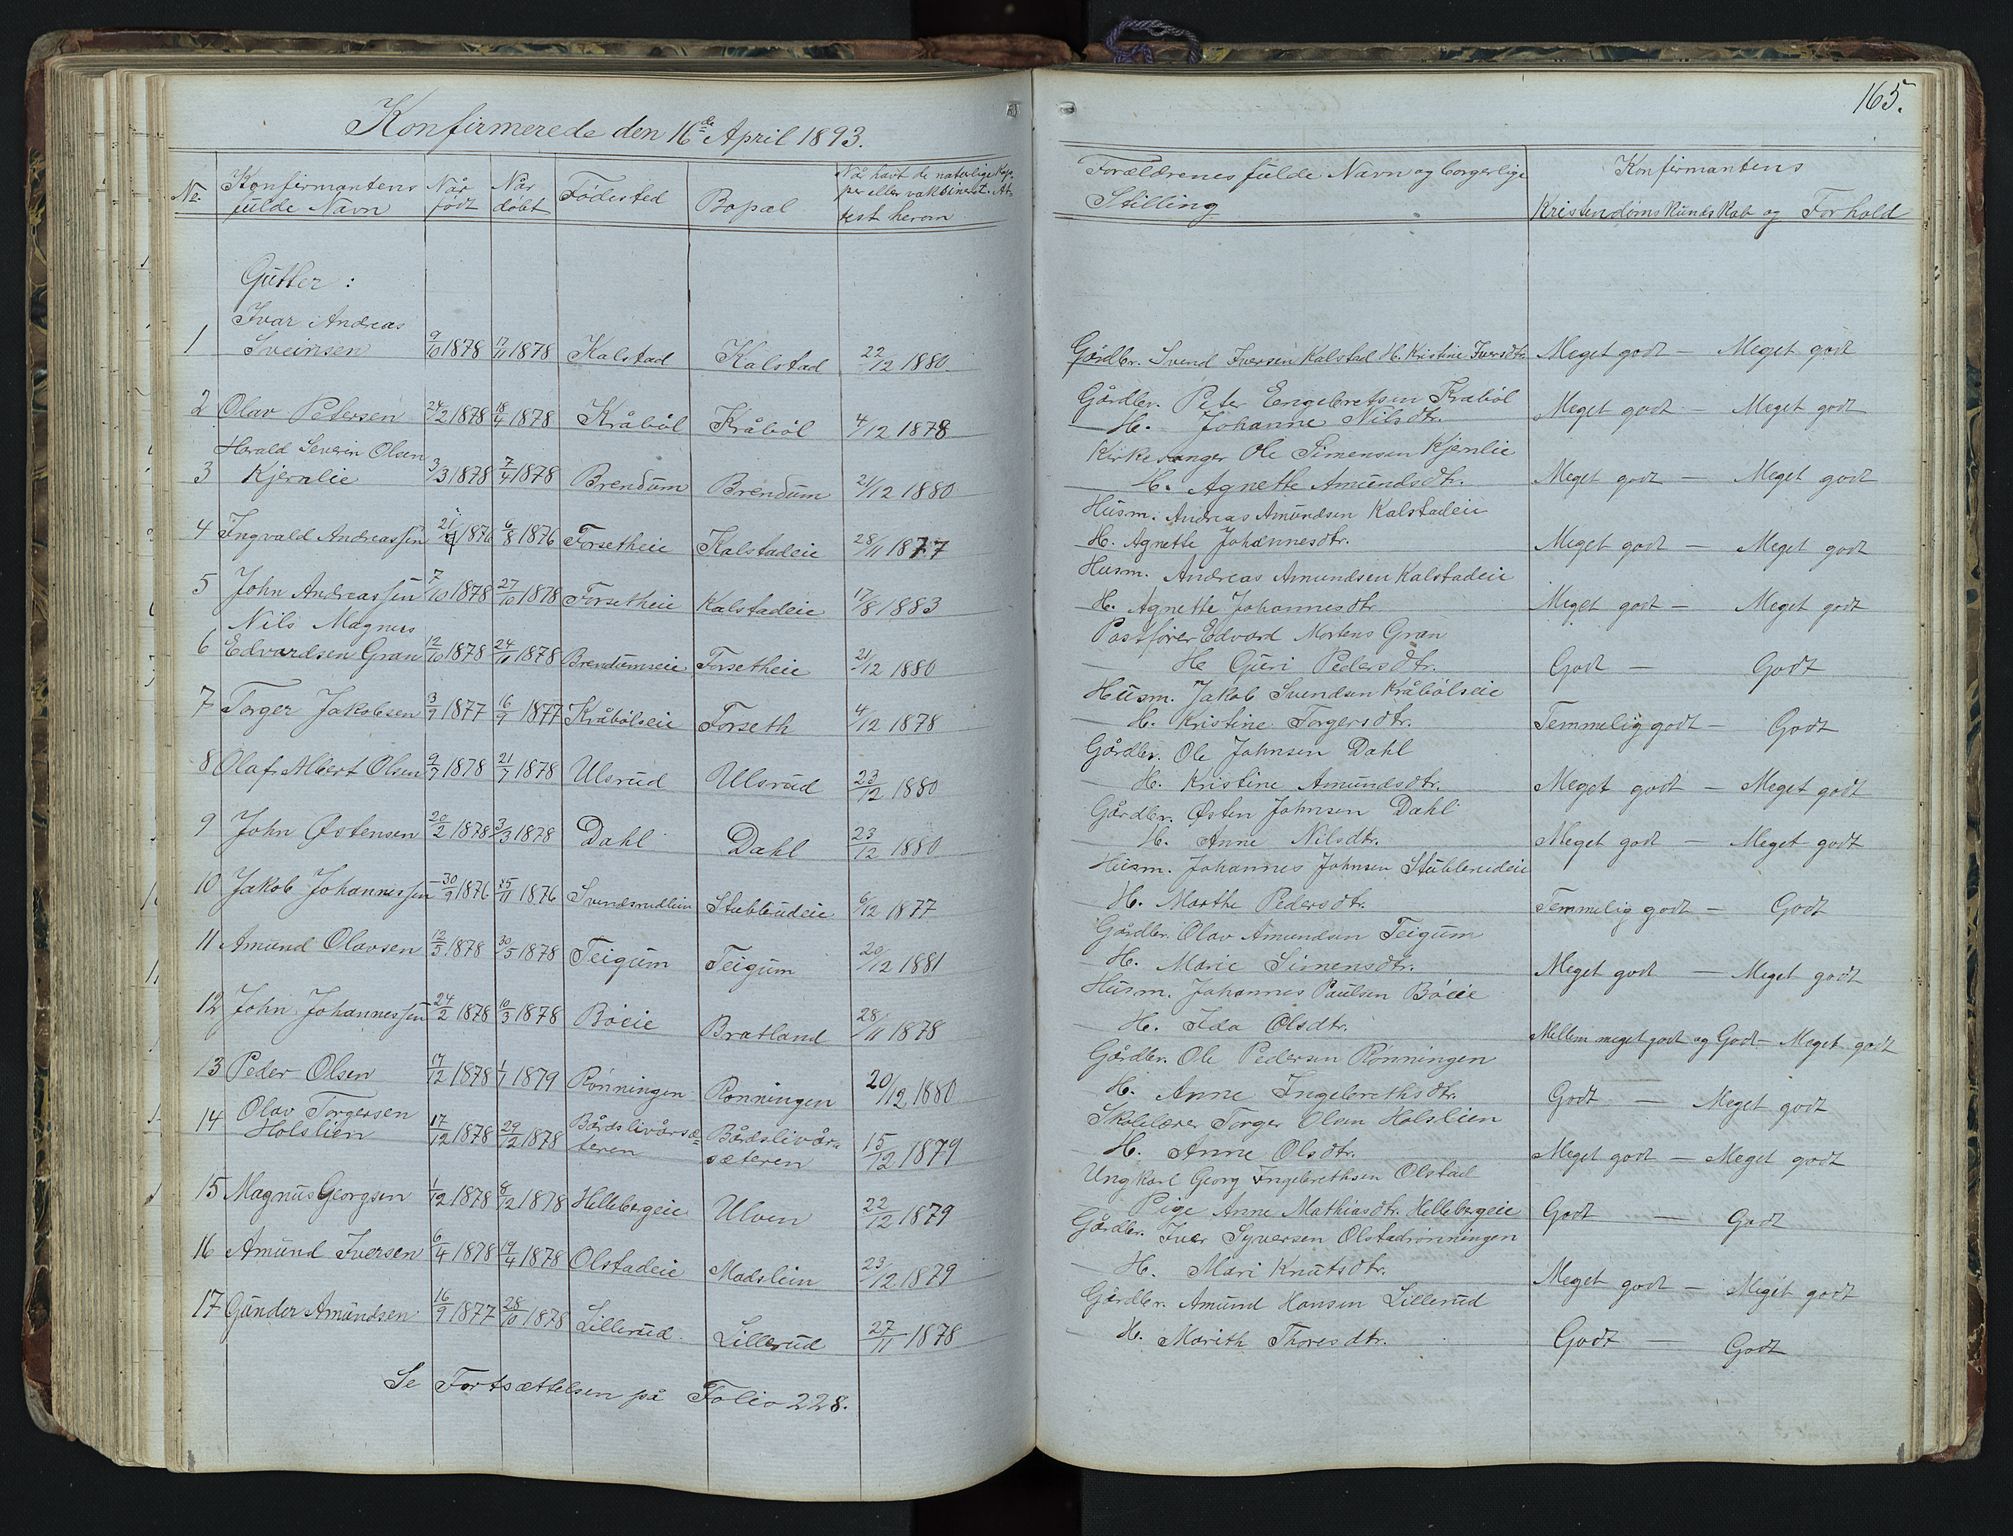 165.
Konfirmerede den 16de April 1893.
No. Konfirmantens fulde Navn Når født Når døbt Fødested Bopæl Når havt de naturlige Kopper eller vakbineret. Attest herom Forældrenes fulde Navn og borgerlige Stilling Konfirmantens Kristendømskundskab og Forhold
Gutter:
1 Ivar Andreas Sveinsen 9/10 1878 17/11 1878 Kalstad Kalstad 22/12 1880 Gårdbr. Svend Iversen Kalstad H. Kristine Iversdtr. Meget godt — Meget godt
2 Olav Petersen 24/2 1878 18/4 1878 Kråbøl Kråbøl 4/12 1878 Gårdbr. Peter Engebretsen Kråbøl H. Johanne Nilsdtr. Meget godt — Meget godt
3 Harald Severin Olsen Kjernlie 3/3 1878 7/4 1878 Brendum Brendum 21/12 1880 Kirkesanger Ole Simensen Kjernlie H. Agnethe Amundsdtr. Meget godt — Meget godt
4 Ingvald Andreassen 21/ 1876 6/8 1876 Forsetheie Kalstadeie 28/11 1877 Husm. Andreas Amundsen Kalstadeie H. Agnette Johannesdtr. Meget godt — Meget godt
5 John Andreassen 7/10 1878 27/10 1878 Forsetheie Kalstadeie 17/8 1883 Husm. Andreas Amundsen Kalstadeie H. Agnette Johannesdtr. Meget godt — Meget godt
6 Nils Magnus Edvardsen Gran 12/10 1878 24/11 1878 Brendumseie Forsetheie 21/12 1880 Postfører Edvard Mortens Gran He Guri Pedersdtr. Godt — Godt
7 Torger Jakobsen 3/9 1877 16/9 1877 Kråbølseie Forseth 4/12 1878 Husm. Jakob Svendsen Kråbølseie H. Kristine Torgersdtr. Temmelig godt — Godt
8 Olaf Albert Olsen 9/7 1878 21/7 1878 Ulsrud Ulsrud 23/12 1880 Gårdbr. Ole Johnsen Dahl H. Kristine Amundsdtr. Meget godt — Meget godt
9 John Østensen 20/2 1878 3/3 1878 Dahl Dahl 23/12 1880 Gårdbr. Østen Johnsen Dahl H. Anne Nilsdtr. Meget godt — Meget godt
10 Jakob Johannessen 30/9 1876 /11 1876 Stubbrudeie 6/12 1877 Husm. Johannes Johnsen Stubbrudeie H. Marthe Pedersdtr. Temmelig godt — Godt
11 Amund Olavsen 12/ 1878 30/5 1878 Teigum Teigum 20/12 1881 Gårdbr. Olav Amundsen Teigum H. Marie Simensdtr. Meget godt — Meget godt
12 John Johannessen 24/2 1878 10/3 1878 Bøeie Bratland 28/11 1878 Husm. Johannes Paulsen Bøeie H. Ida Olsdtr. Mellem meget godt og Godt — Meget godt
13 Peder Olsen 17/12 1878 1/1 1879 Rønningen Rønningen 20/12 1880 Gårdbr. Ole Pedersen Rønningen H. Anne Ingebrethsdtr. Godt — Meget godt
14 Olav Torgersen Holslien 17/12 1878 29/12 1878 Bårdslivårsæteren Bårdslivårsæteren 15/12 1879 Skolelærer Torger Olsen Holslien H. Anne Olsdtr. Meget godt — Meget godt
15 Magnus Georgsen 1/12 1878 8/12 1878 Hellebergeie Ulven 22/12 1879 Ungkarl Georg Ingebrethsen Olstad Pige Anne Mathiasdtr. Hellebergeie Godt — Godt
16 Amund Iversen 6/4 1878 19/4 1878 Olstadeie Madslein 23/12 1879 Gårdbr. Iver Syversen Olstadrønningen H. Mari Knutsdtr. Meget godt — Meget godt
17 Gunder Amundsen 16/9 1877 28/10 1878 Lillerud Lillerud 27/11 1878 Gårdbr. Amund Hansen Lillerud H. Marith Thoresdtr. Godt — Godt
Se Fortsættelsen på Folio 228.